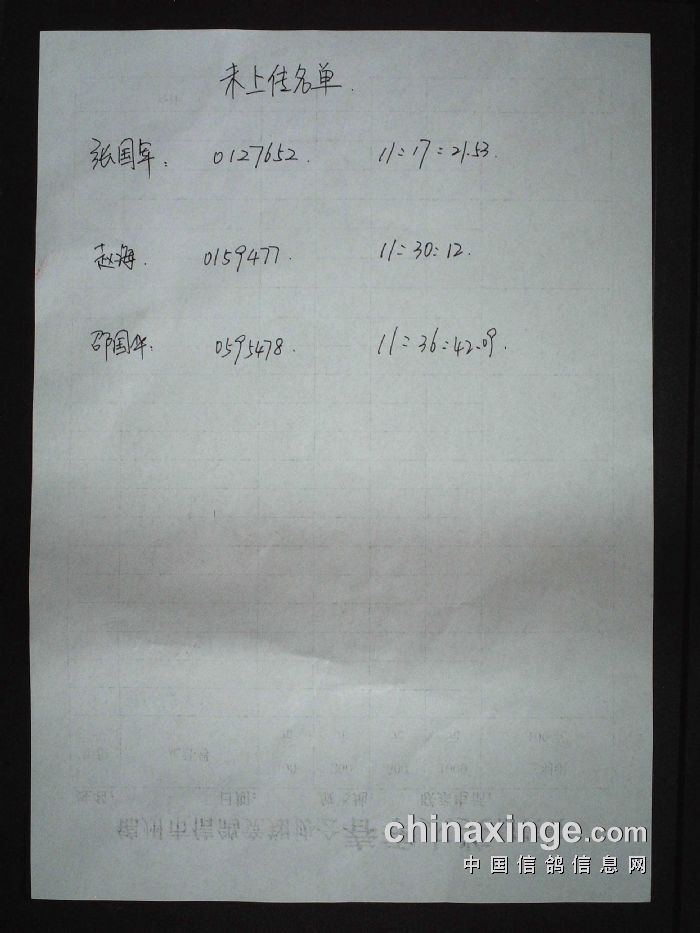 未上传名单.
张国军: 0127652. 11:17:21.53.
赵海. 0159477. 11:30:12.
邵国华: 0595478. 11:36:42.09.
chinaxinge.com
中国信鸽信息网